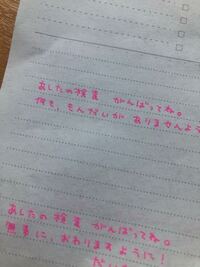 あしたの検査 がんばってね。
何も、もんだいが ありませんよう
あしたの検査 がんばってね。
無事に、おわりますように!